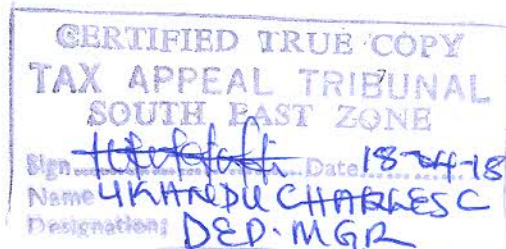 CERTIFIED TRUE COPY
TAX APPEAL TRIBUNAL
SOUTH EAST ZONE
Sign Date 18-04-18
Name UKANDU CHARLES C
Designation: DEP. MGR